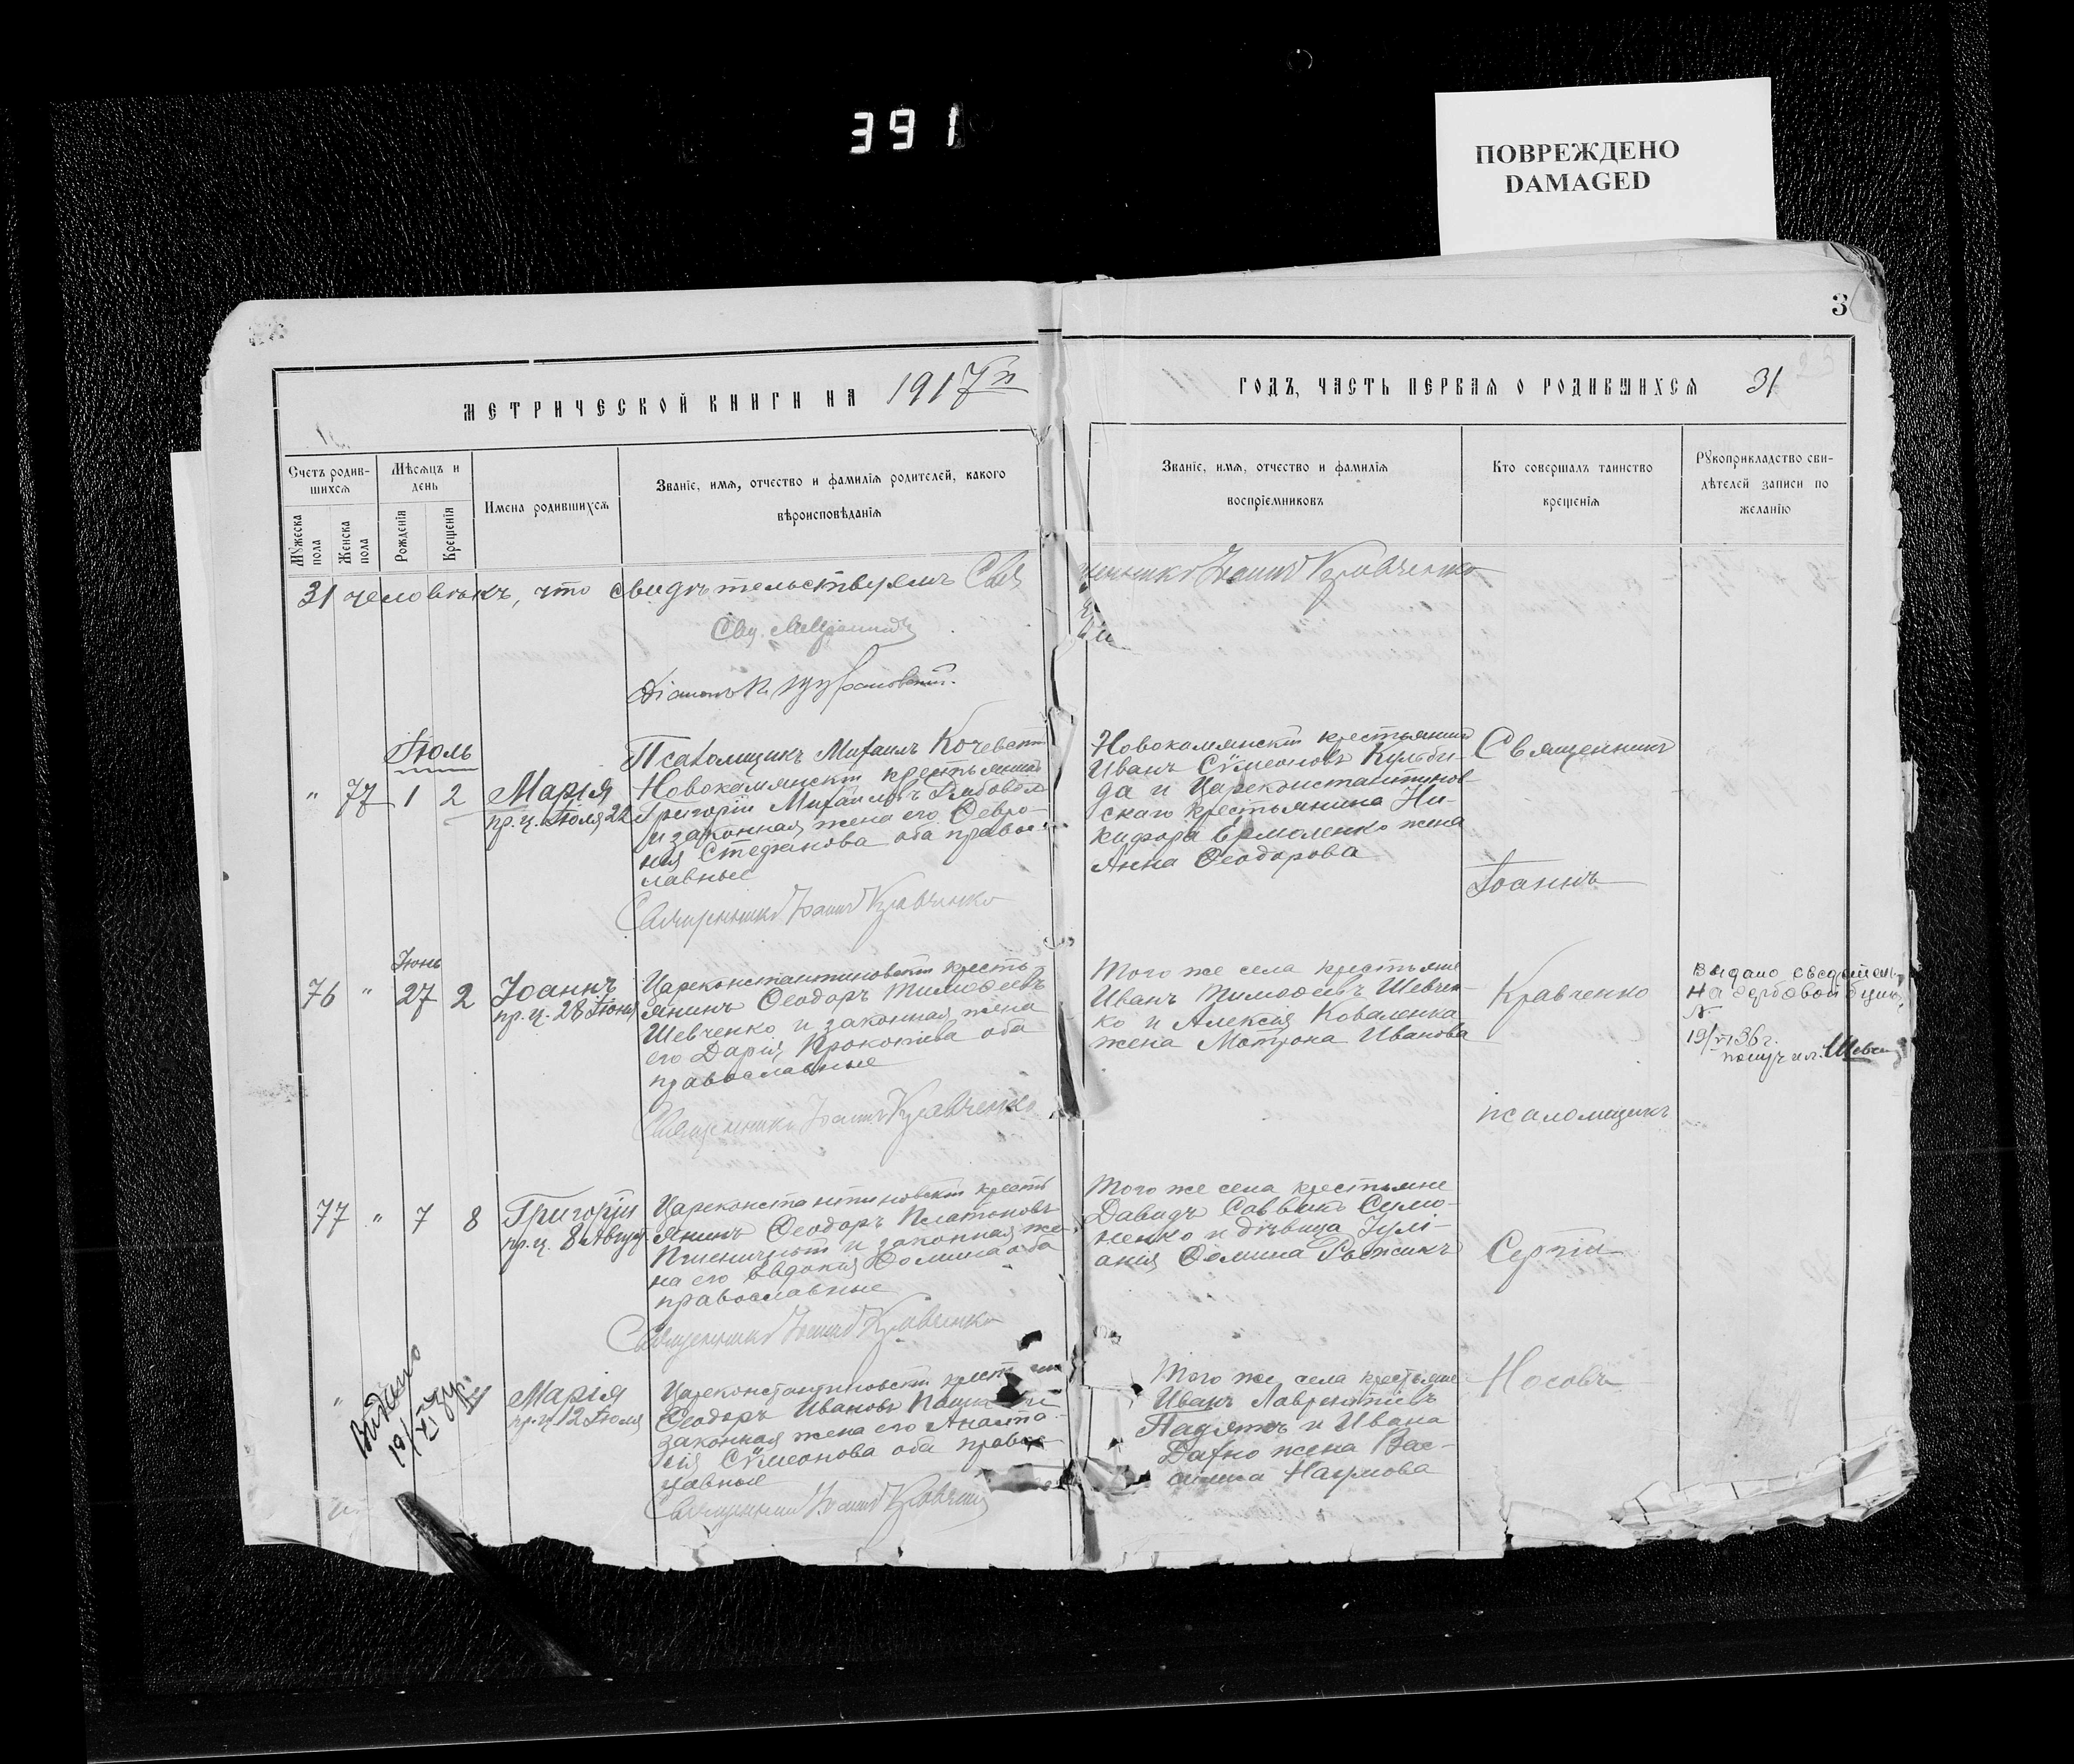 391
ПОВРЕЖДЕНО
DAMAGED
3
МЕТРИЧЕСКОЙ КНИГИ НА 1917 г
ГОДЪ, ЧАСТЬ ПЕРВАЯ О РОДИВШИХСЯ 31
Счетъ родив-
шихся
Мужеска пола
Женска пола
Мѣсяцъ и
день
Рожденія
Крещенія
Имена родившихся
Званіе, имя, отчество и фамилія родителей, какого
вѣроисповѣданія
Званіе, имя, отчество и фамилія
воспріемниковъ
Кто совершалъ таинство
крещенія
Рукоприкладство сви-
дѣтелей записи по
желанію
31 человѣкъ, что свидѣтельствуемъ Свя
щенникъ Іоаннъ Кравченко
Свящ.
Діаконъ
Іюль
" 77 1 2
Марія
пр. ц. Іюля 22
Псаломщикъ Михаилъ
Новокамянскій крестьянинъ
Григорій Михаиловъ
и законная жена его Феврo-
нія Стефанова оба правос-
лавные
Священникъ Іоаннъ Кравченко
Новокамянскій крестьянинъ
Иванъ Сѵмеоновъ Кульби-
да и Цареконстантинов
скаго крестьянина Ни-
кифора Ермоленко жена
Анна Ѳеодорова
Священникъ
Іоаннъ
Іюнь
76 " 27 2
Іоаннъ
пр. ц. 28 Іюня
Цареконстантиновскій кресть-
янинъ Ѳеодоръ Тимоѳеевъ
Шевченко и законная жена
его Дарія Прокопіева оба
православные
Священникъ Іоаннъ Кравченко
Того же села крестьяне
Иванъ Тимоѳеевъ Шевчен-
ко и Алексія Коваленка
жена Мотрона Иванова
Кравченко
псаломщикъ
Выдано
на гербовой
19/VI 36 г.
получил Шевч
77 " 7 8
Григорій
пр. ц. 8 Август.
Цареконстантиновскій кресть
янинъ Ѳеодоръ Платоновъ
Пшеничный и законная же-
на его Евдокія Ѳомина оба
православные
Священникъ Іоаннъ Кравченко
Того же села крестьяне
Давидъ Саввинъ Семе-
ненко и дѣвица Іулі-
анія Ѳомина
Сергій
"
Видано
Марія
пр. ц. 12 Іюля
Цареконстантиновскій крест
Ѳеодоръ Ивановъ
законная жена его Анаста-
сія Сѵмеонова оба право-
славные
Священникъ Іоаннъ Кравченко
Того же села крестьяне
Иванъ Лаврентіевъ
и Ивана
Дахно жена Вас-
силиса Наумова
Носовъ